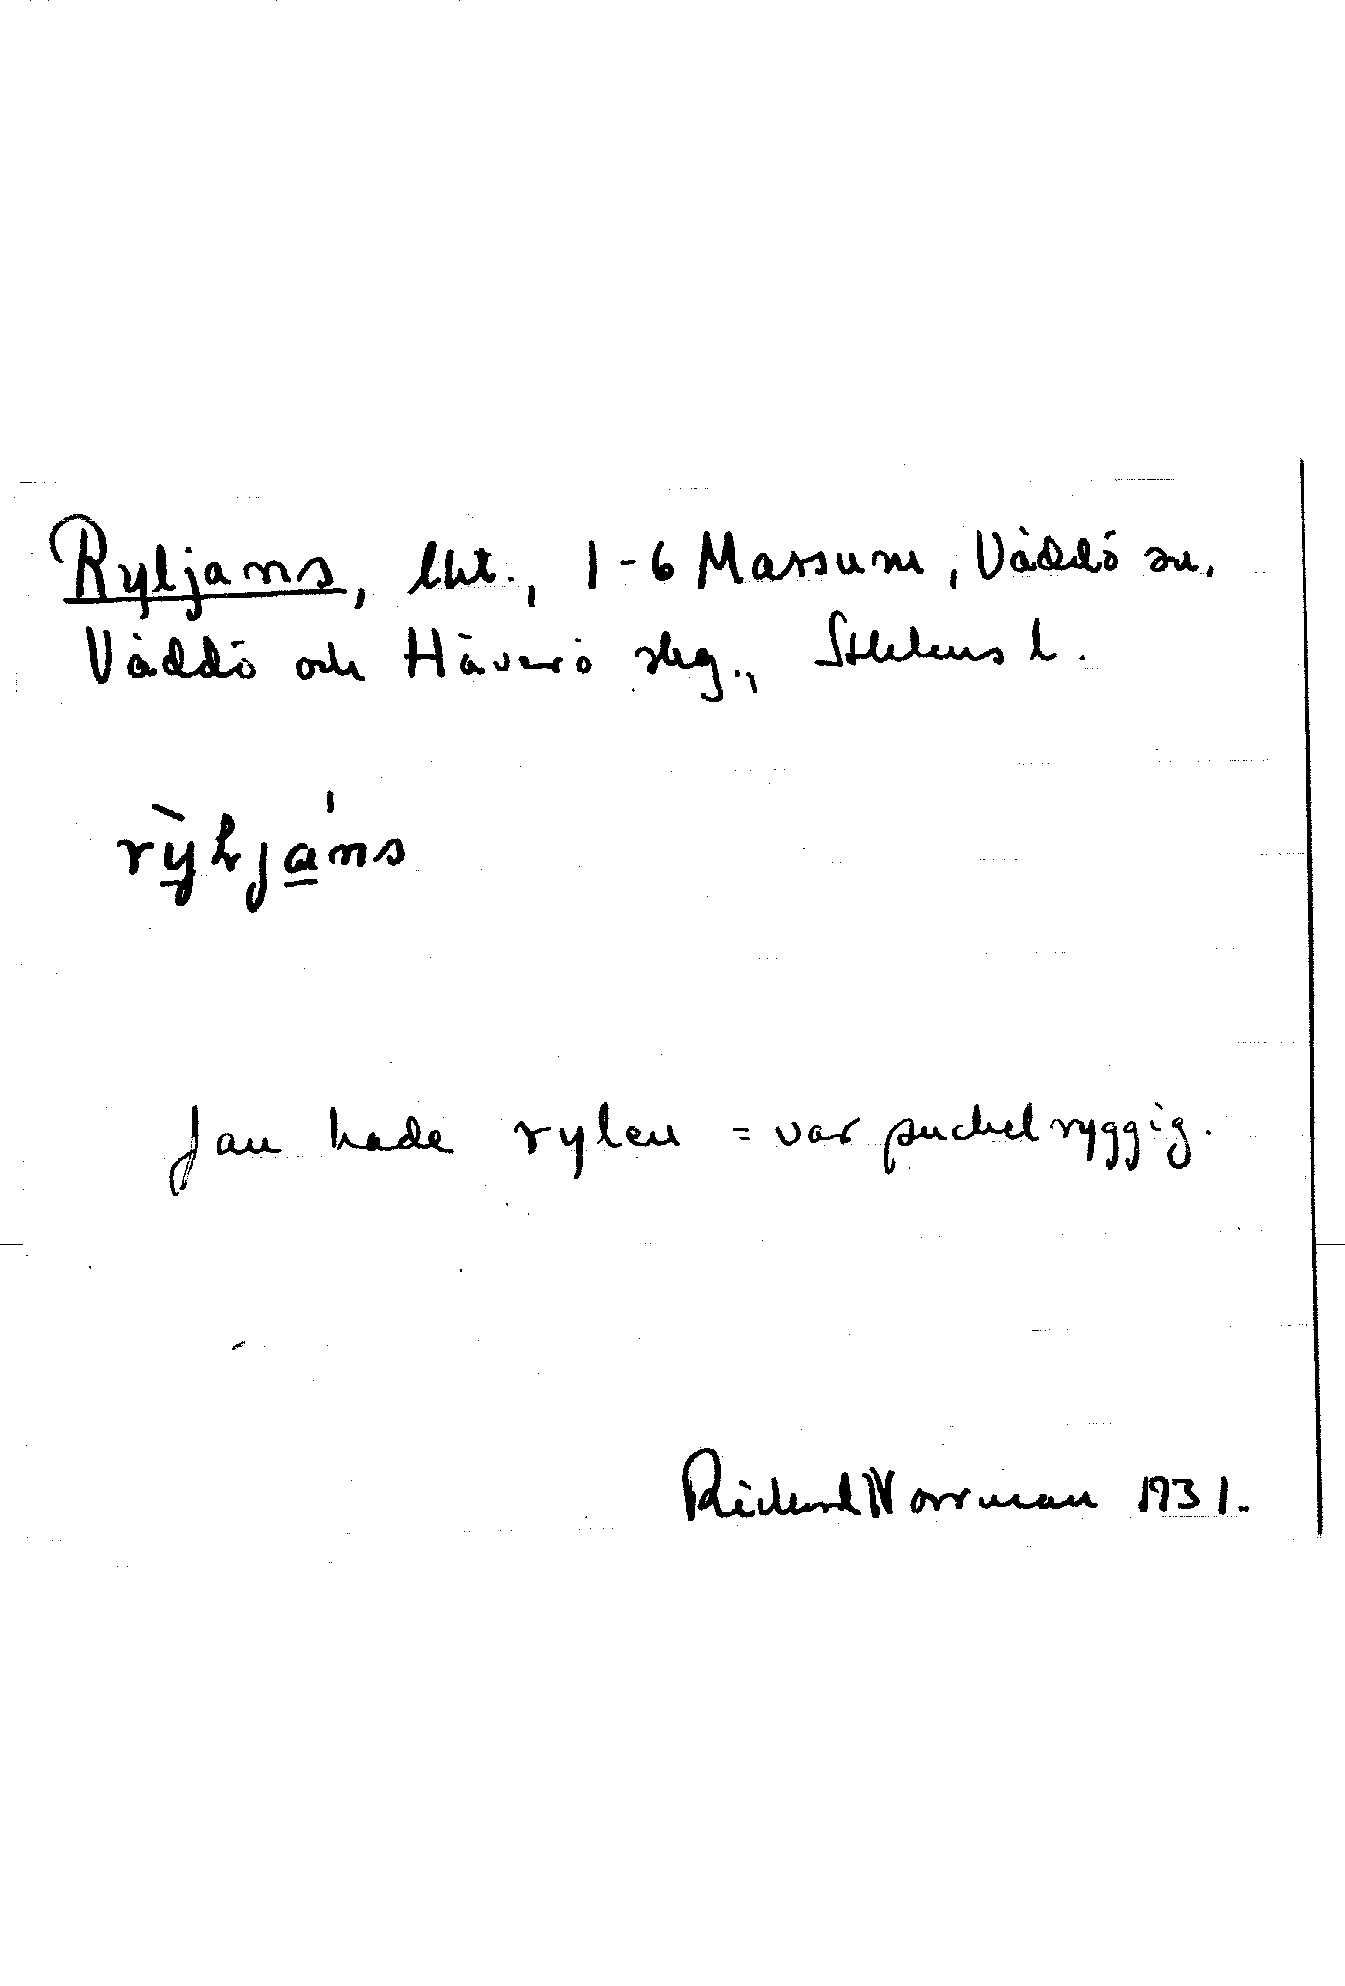 Ryljans, lht., 1-6 Massum, Väddö sn,
Väddö och Häverö skg., Sthlms l.
rỳljáns
Jan hade rylen = var puckelryggig.
Richard Norrman 1931.